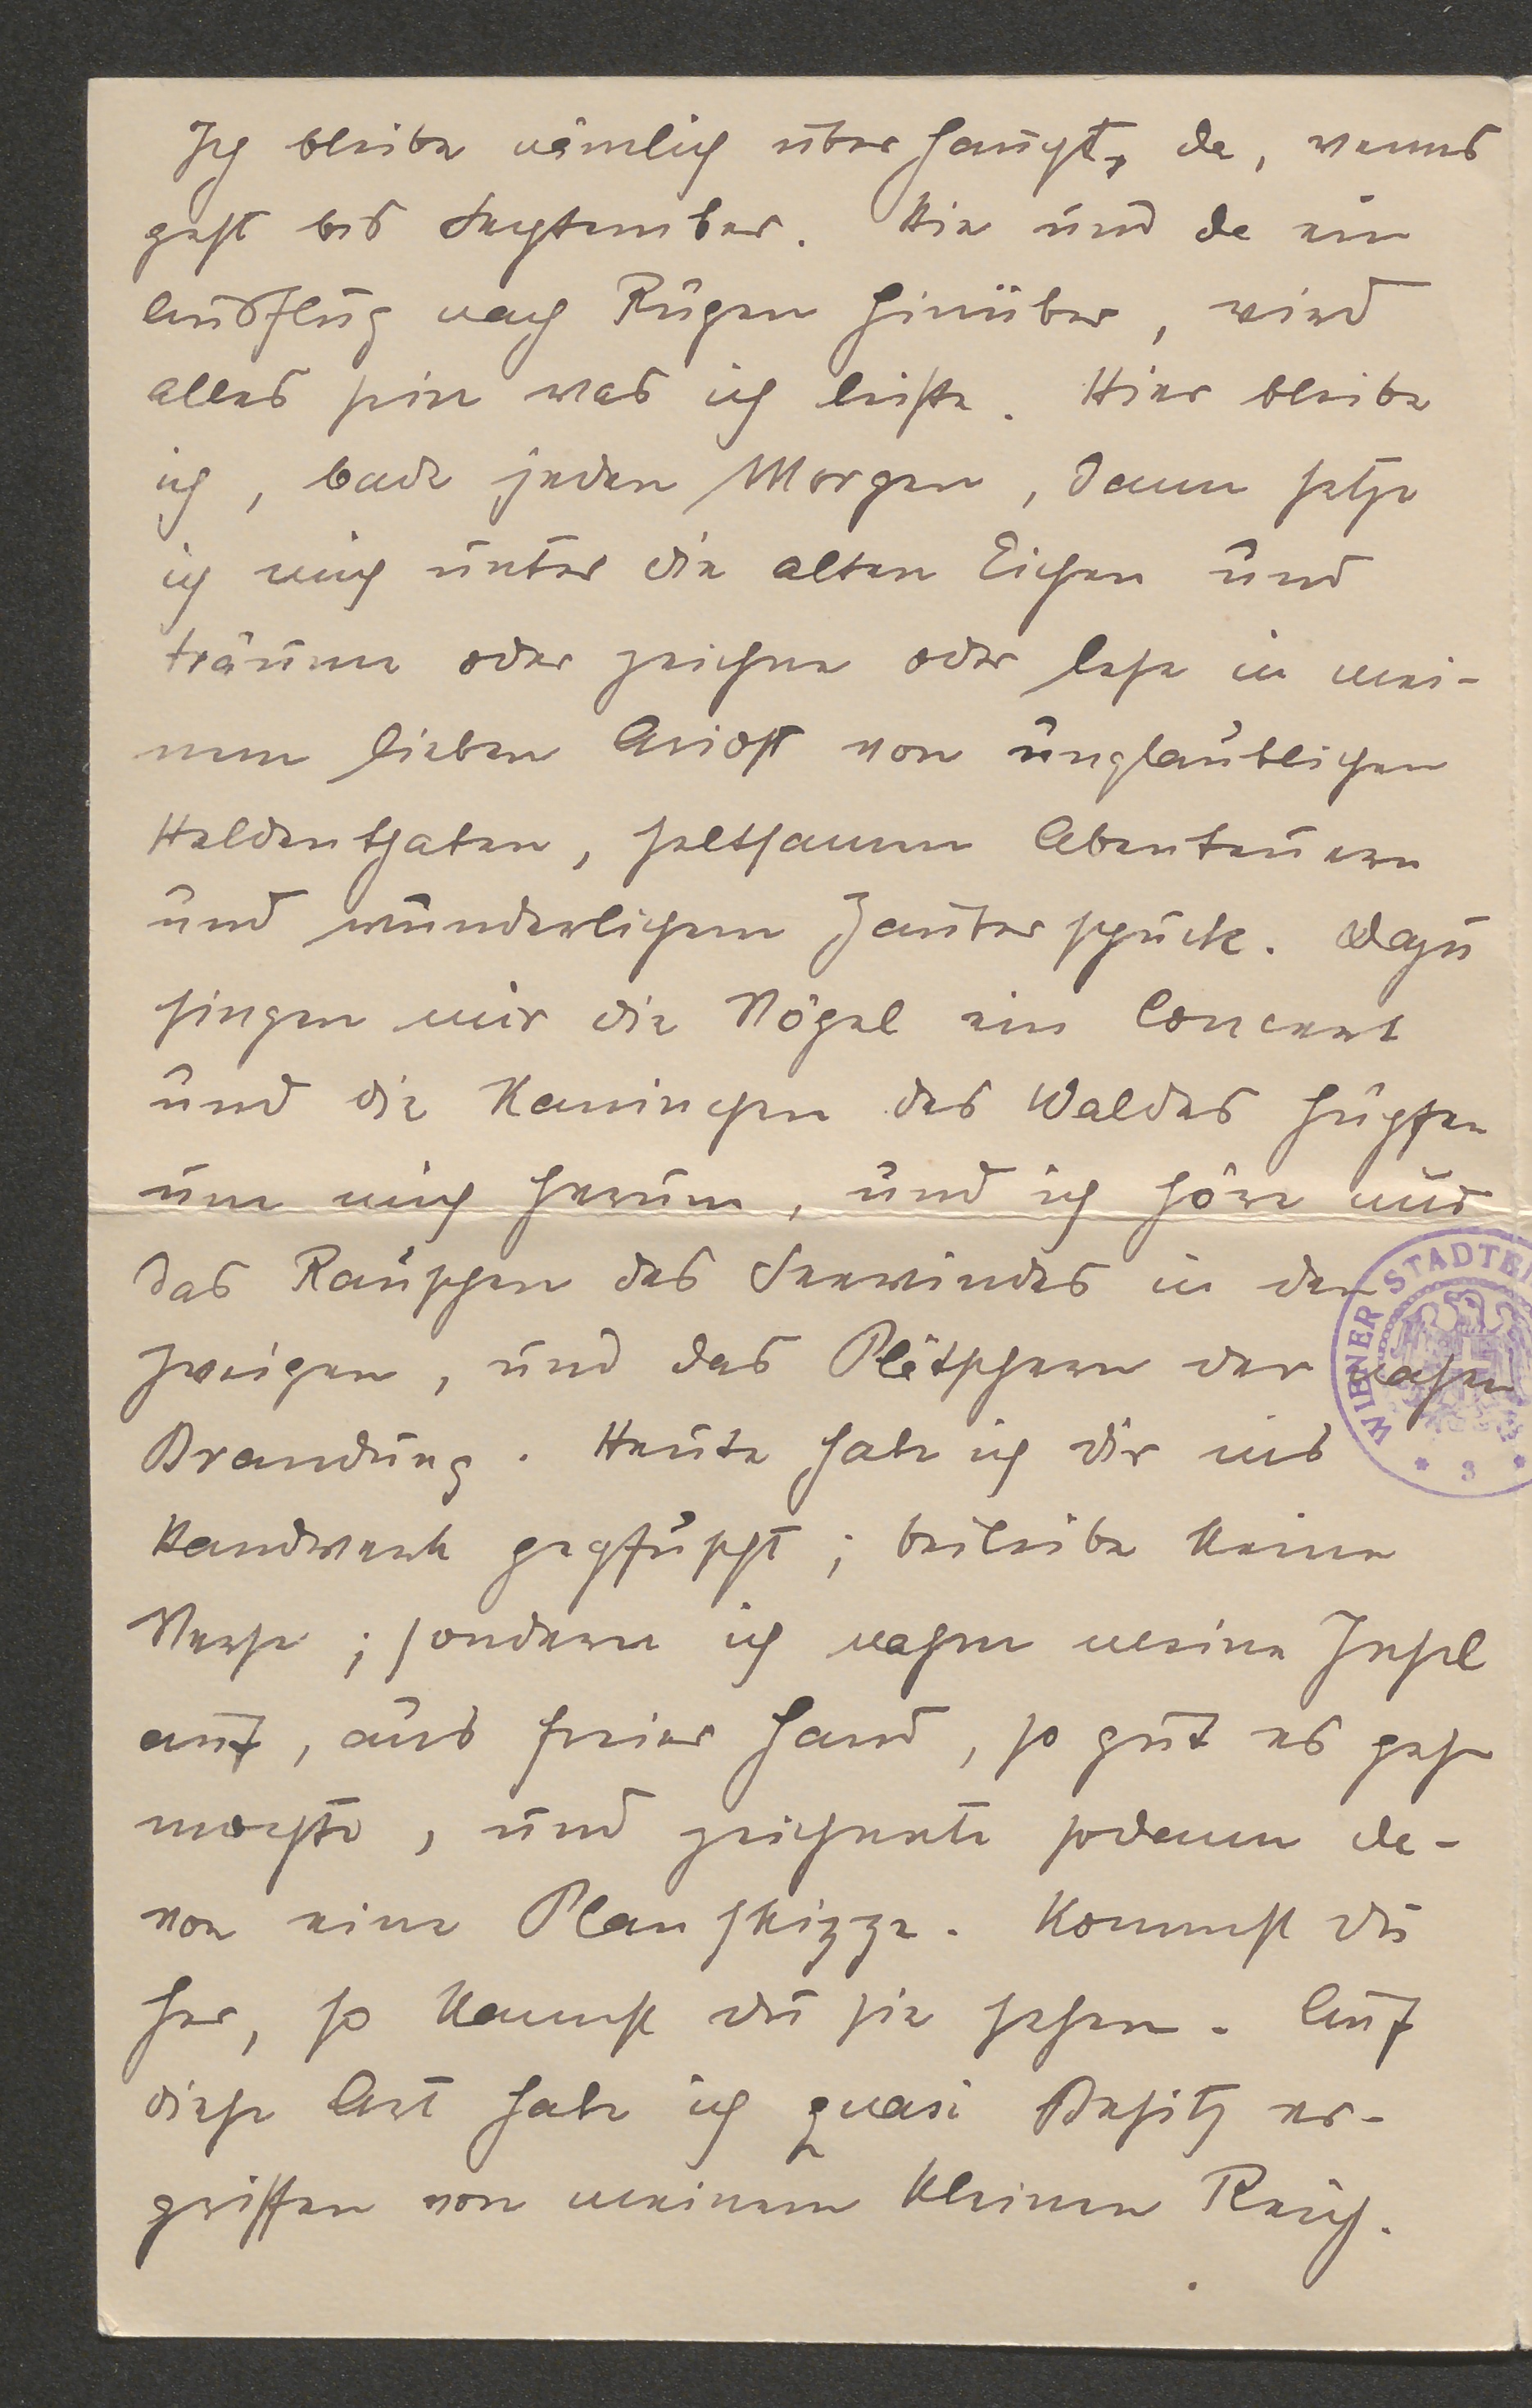 Ich bleibe nämlich überhaupt, da, wenns
geht bis September. Hie und da ein
Ausflug nach Rügen hinüber, wird
alles sein was ich leiste. Hier bleibe
ich, bade jeden Morgen, dann setze
ich mich unter die alten Eichen und
träume oder zeichne oder lese in mei-
nem lieben Ariost von unglaublichen
Heldenthaten, seltsamen Abenteuern
und wunderlichem Zauberspuck. Dazu
singen mir die Vögel ein Concert
und die Kaninchen des Waldes hüpfen
um mich herum, und ich höre nur
das Rauschen des Seewindes in den
Zweigen, und das Plätschern der nahen
Brandung. Heute hab ich dir ins
Handwerk gepfuscht; beileibe keine
Verse; sondern ich nahm meine Insel
auf, aus freier Hand, so gut es gehn
mochte, und zeichnete sodann da-
von eine Planskizze. Kommst du
her, so kannst du sie sehen. Auf
diese Art habe ich quasi Besitz er-
griffen von meinem kleinen Reich.
WIENER STADTBI
* 3 *